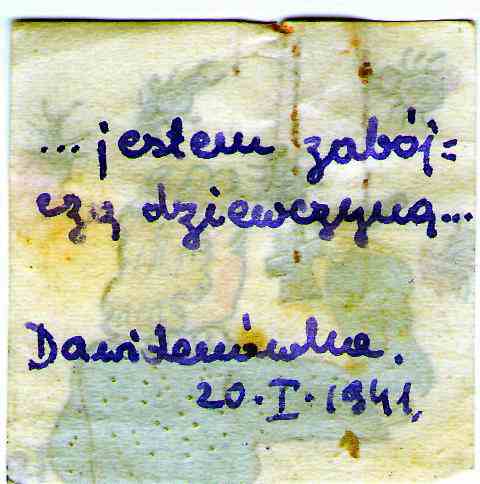 ... jestem zabój=
czą dziewczyną...
Dawidenówka.
20.I.1941.